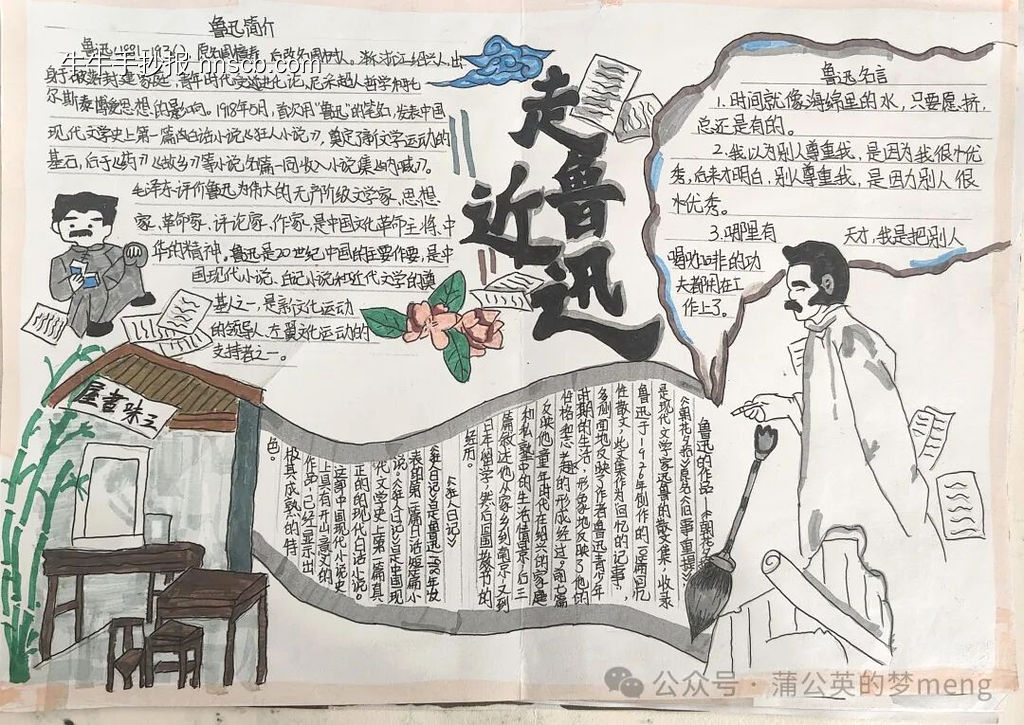 鲁迅简介
生生手抄报 nnscb.com
身于破落封建家庭，青年时代受进化论，尼采超人哲学和托
尔斯泰博爱思想的影响。1918年5月，首次用"鲁迅"的笔名，发表中国
现代文学史上第一篇白话小说《狂人小说》，奠定了新文学运动的
基石，后于《药》《故乡》等小说名篇一同收入小说集《呐喊》。
毛泽东评价鲁迅为伟大的无产阶级文学家、思想
家、革命家、评论家、作家、是中国文化革命主将、中
华的精神。鲁迅是20世纪中国的主要作要，是中
国现代小说、白记小说和近代文学的奠
基人之一，是新文化运动
的领导人、左翼文化运动的
支持者之一。
走近鲁迅
鲁迅名言
1.时间就像海绵里的水，只要愿挤，
总还是有的。
2.我以为别人尊重我，是因为我很优
秀，后来才明白，别人尊重我，是因为别人很
优秀。
3.哪里有 天才，我是把别人
喝咖啡的功
夫都用在工
作上了。
三味書屋
鲁迅的作品《朝花夕拾》
《朝花夕拾》原名《旧事重提》
是现代文学家迅景的散文集，收录
鲁迅于1926年创作的10篇回忆
性散文，此文集作为回忆的记事，
多侧面地反映了作者鲁迅青少年
时期的生活，形象地反映了他的
性格和志趣的形成经过。前七篇
反映他童年时代在绍兴的家庭
和私塾中的生活情景，后三
篇叙述他从家乡到南京，又到
日本留学，然后回国教书的
经历。
《狂人日记》
《狂人日记》是鲁迅1918年发
表的第一篇白话短篇小
说。《狂人日记》是中国现
代文学史上第一篇真
正的的现代白话小说。
这部中国现代小说史
上具有开山意义的
作品，已经显示出
极其成熟的特
色。
公众号 · 蒲公英的梦meng